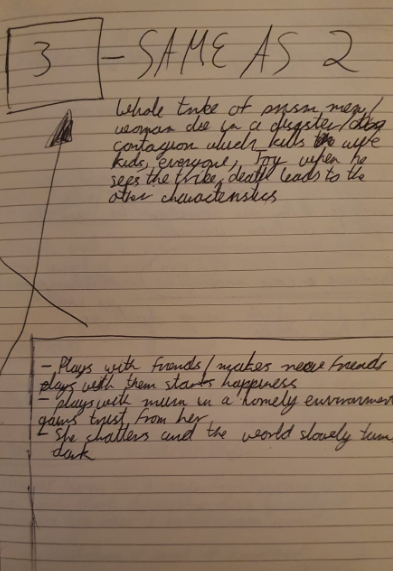 3 - SAME AS 2
Whole tribe of prism men/
woman die in a disaster/
contagion which kills wife
kids, everyone, Joy when he
sees the tribe, death leads to the
other characteristics
- Plays with friends/makes new friends
plays with them starts happiness
- plays with mum in a homely environment
gains trust from her
- She shatters and the world slowly turn
dark